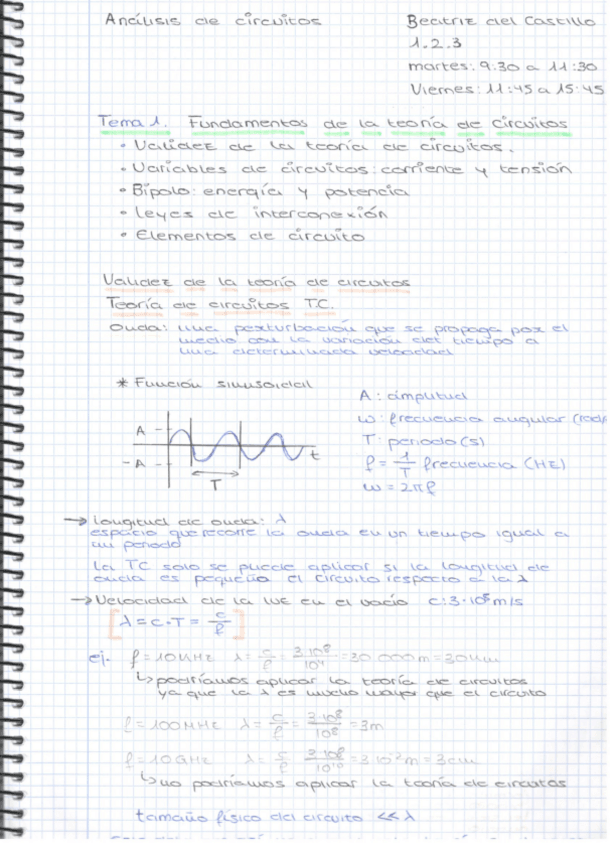 Análisis de circuitos
Beatriz del Castillo
1.2.3
martes: 9:30 a 11:30
Viernes: 11:45 a 15:45
Tema 1. Fundamentos de la teoría de circuitos
• Validez de la teoría de circuitos.
• Variables de circuitos: corriente y tensión
• Bipolo: energía y potencia
• Leyes de interconexión
• Elementos de circuito
Validez de la teoría de circuitos
Teoría de circuitos T.C.
Onda: una perturbación que se propaga por el
medio con la variación del tiempo a
una determinada velocidad
* Función sinusoidal
A: amplitud
ω: frecuencia angular (rad/
T: periodo (s)
f = 1/T frecuencia (Hz)
ω = 2πf
A
-A
t
T
→ Longitud de onda: λ
espacio que recorre la onda en un tiempo igual a
un periodo
La TC solo se puede aplicar si la longitud de
onda es pequeño el circuito respecto a la λ
→ Velocidad de la luz en el vacío c: 3·10⁸ m/s
[λ = c·T = c/f]
ej. f = 10 kHz λ = c/f = 3·10⁸/10⁴ = 30 000 m = 30 km
↳ podríamos aplicar la teoría de circuitos
ya que la λ es mucho mayor que el circuito
f = 100 MHz λ = c/f = 3·10⁸/10⁸ = 3m
f = 10 GHz λ = c/f = 3·10⁸/10¹⁰ = 3·10⁻² m = 3cm
↳ no podríamos aplicar la teoría de circuitos
tamaño físico del circuito << λ